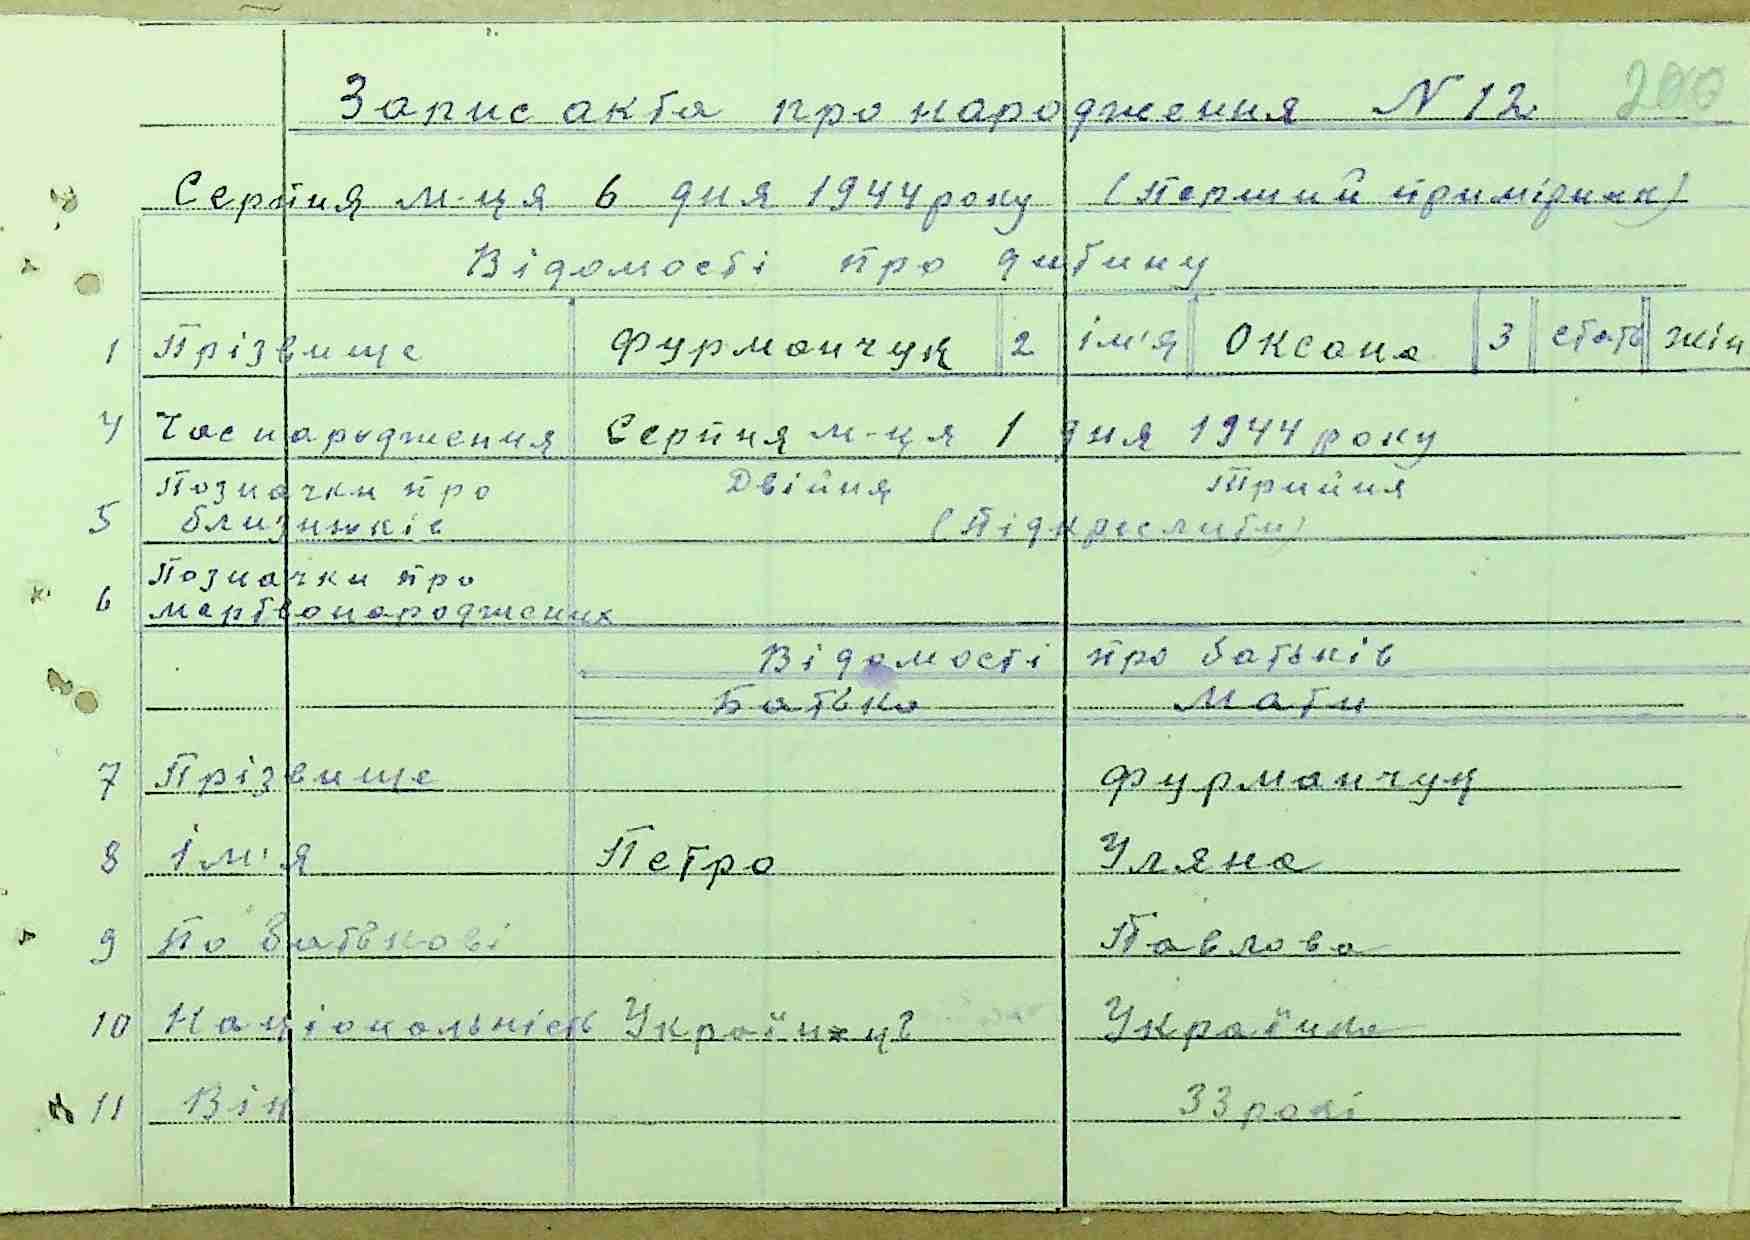 200
Запис акта про народження N 12
Серпня м-ця 6 дня 1944 року (Перший примірник)
Відомості про дитину
1 Прізвище Фурманчук 2 ім'я Оксана 3 стать жін
4 Час народження Серпня м-ця 1 дня 1944 року
5 Позначки про близнюків Двійня Трийня
(Підкреслити)
6 Позначки про
мертвонароджених
Відомості про батьків
Батько Мати
7 Прізвище Фурманчук
8 Ім'я Петро Уляна
9 По батькові Павлова
10 Національність Українець Українка
11 Вік 33 рокі